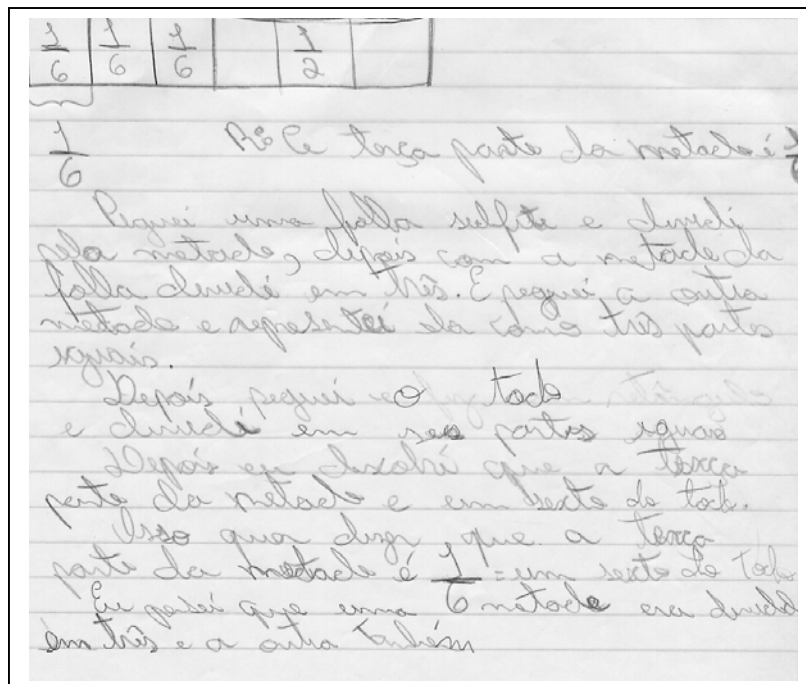 1/6 1/6 1/6 1/2
1/6 R: A terça parte da metade é 1/6
Peguei uma folla sulfite e dividi
pela metade, depois com a metade da
folla dividi em três. E peguei a outra
metade e representei ela como três partes
iguais.
Depois peguei o todo
e dividi em seis partes iguais
Depois eu descobri que a terça
parte da metade e um sexto do todo.
Isso quer dizer, que a terça
parte da metade é 1/6 = um sexto do todo
Eu pensei que uma metade era dividida
em três e a outra também